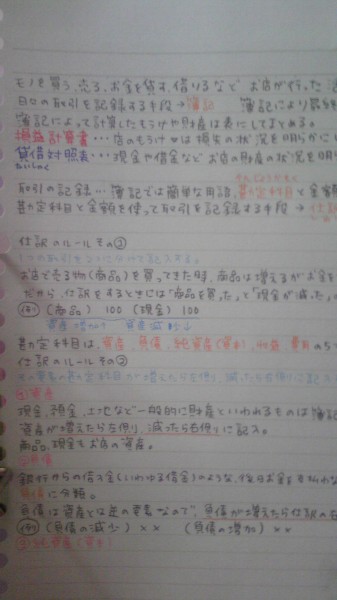 モノを買う、売る、お金を貸す、借りるなど お店が行った
日々の取引を記録する手段→簿記 簿記により最終
簿記によって計算したもうけや財産は表にしてまとめる。
損益計算書・・・店のもうけや損失の状況を明らかに
貸借対照表・・・現金や借金など お店の財産の状況を明
たいしゃく
取引の記録・・・簿記では簡単な用語、勘定科目と金額
勘定科目と金額を使って取引を記録する手段 → 仕訳
仕訳のルール その①
1つの取引を2つに分けて記入する。
お店で売る物(商品)を買ってきた時、商品は増えるがお金を
だから、仕訳をするときには「商品を買った」と「現金が減った」の
例 (商品) 100 (現金) 100
資産増加↑ 資産減少↓
勘定科目は、資産、負債、純資産(資本)、収益、費用の5つ
仕訳のルール その②
の要素の勘定科目が増えたら左側、減ったら右側に記入
①資産
現金、預金、土地など一般的に財産といわれるものは簿記
資産が増えたら左側、減ったら右側に記入。
商品、現金もお店の資産。
②負債
銀行からの借り金(いわゆる借金)のような、後日お金を支払わな
負債に分類。
負債は資産とは逆の要素なので、負債が増えたら仕訳の右
例 (負債の減少) ×× (負債の増加) ××
③純資産(資本)